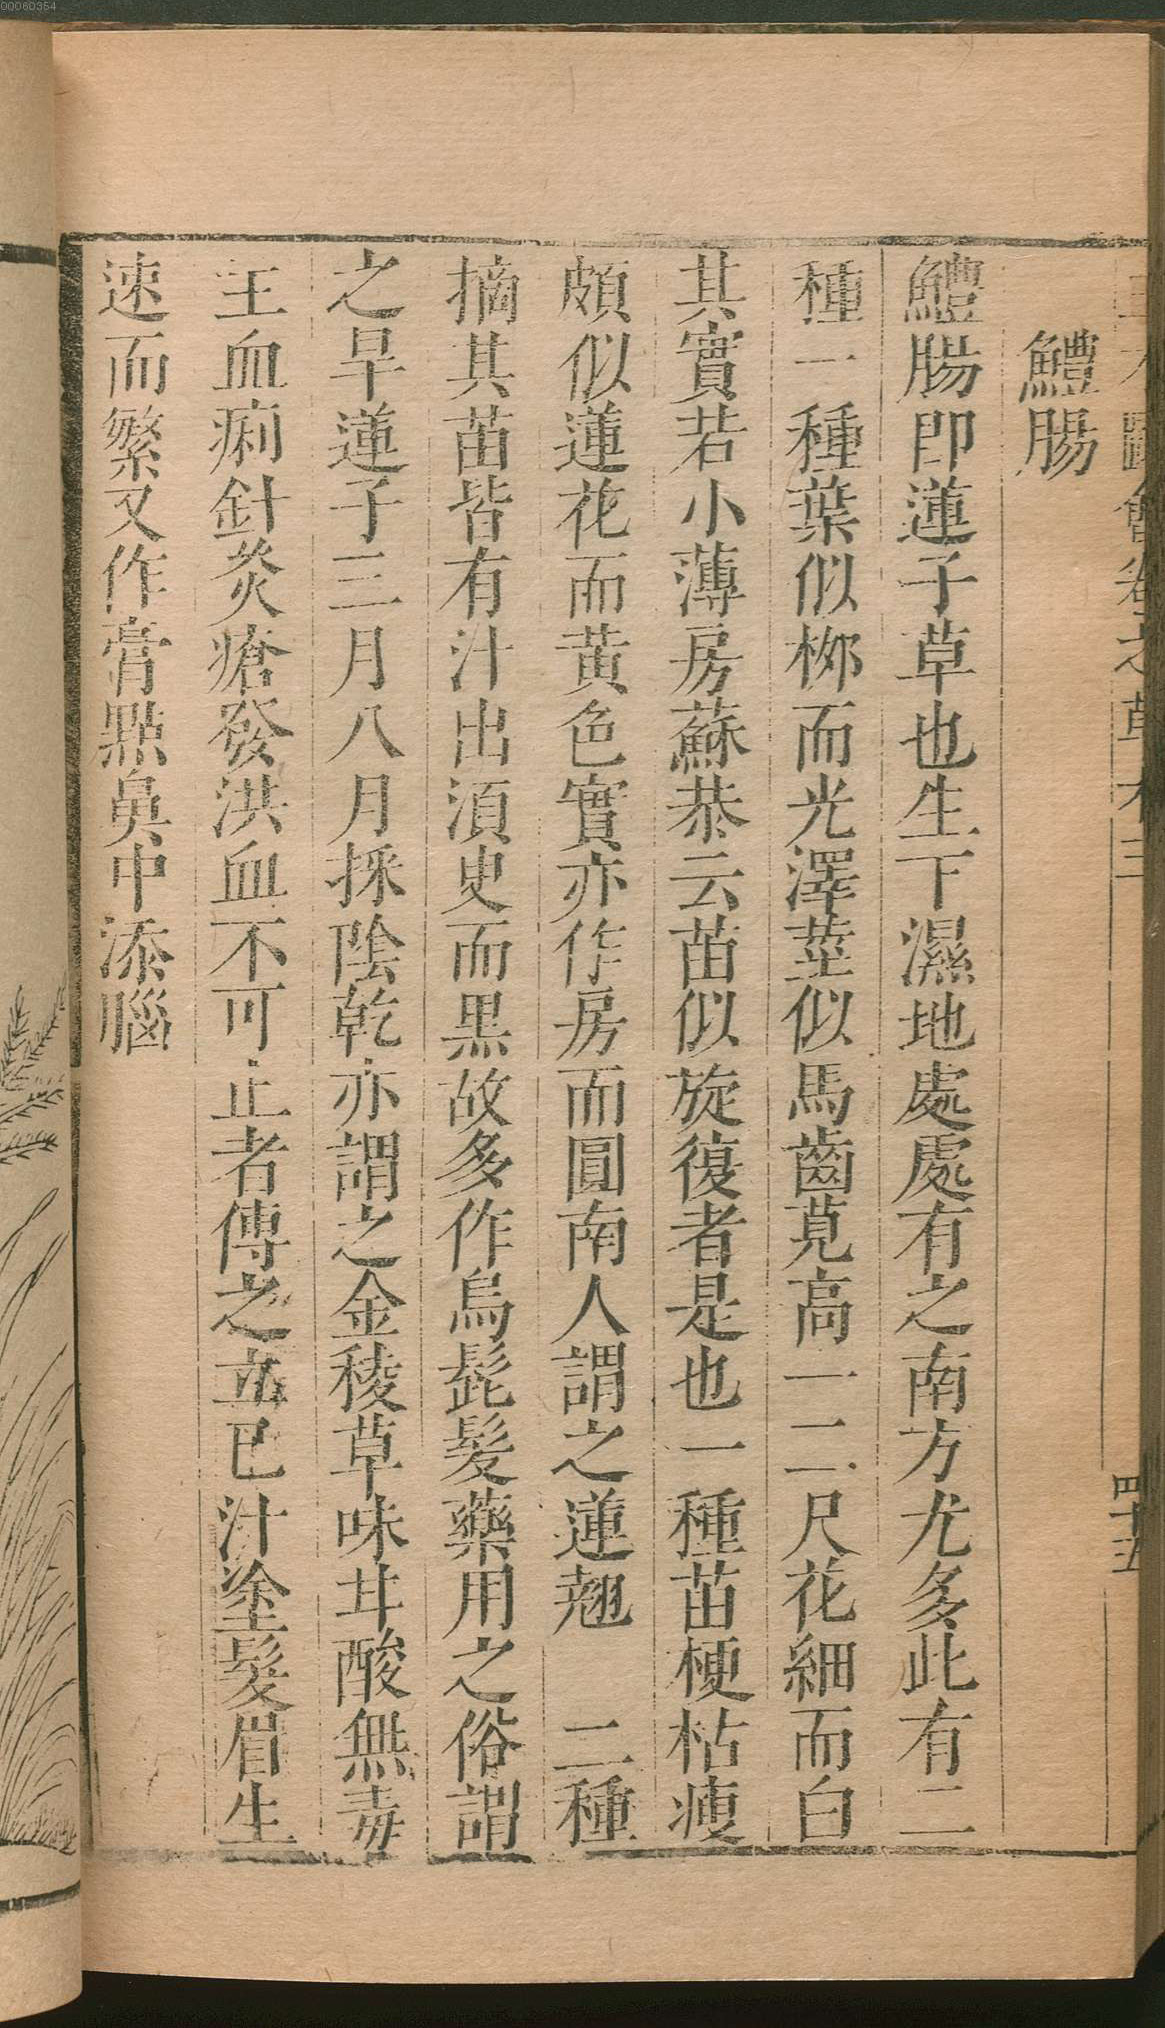 鱧腸
鱧腸即蓮子草也生下濕地處處有之南方尤多此有二
種一種葉似桞而光澤莖似馬齒莧高一二尺花細而白
其實若小薄房蘇恭云苗似旋復者是也一種苗梗枯瘦
頗似蓮花而黃色實亦作房而圓南人謂之蓮翹 二種
摘其苗皆有汁出湏史而黑故多作烏髭髮藥用之俗謂
之旱蓮子三月八月採陰乾亦謂之金稜草味甘酸無毒
主血痢針炙瘡發洪血不可止者傅之立已汁塗髮眉生
速而繁又作膏點鼻中添腦
四十五
00060354